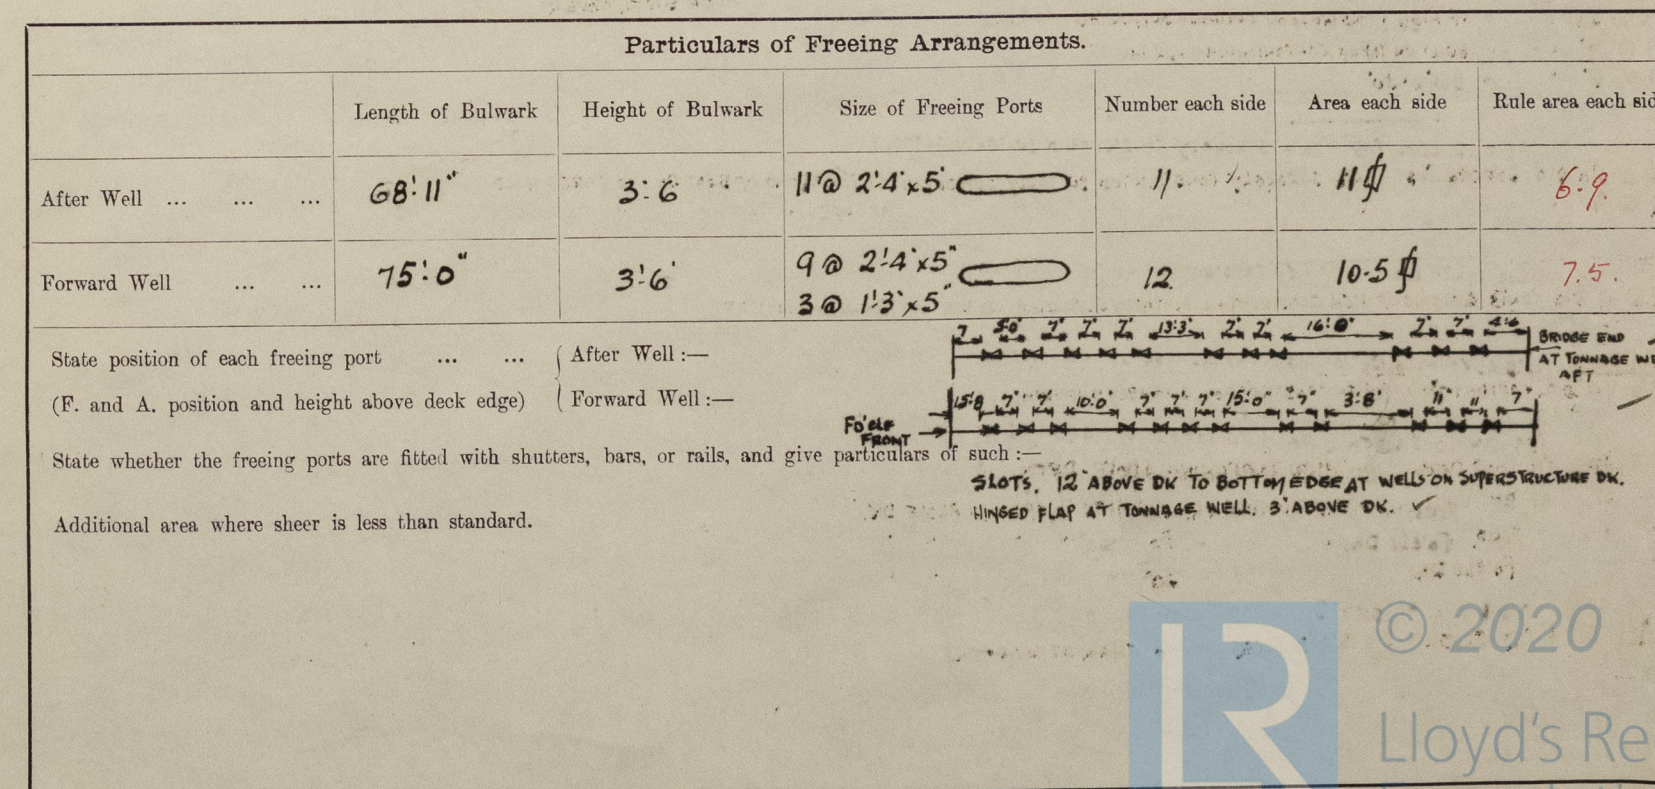 Particulars of Freeing Arrangements.
Length of Bulwark Height of Bulwark Size of Freeing Ports Number each side Area each side Rule area each sid
After Well ... ... ... 68'.11" 3'.6 11 @ 2'.4"x5" 11. 11 6.9.
Forward Well ... ... 75'.0" 3'.6" 9 @ 2'.4"x5" 12. 10.5 7.5.
3 @ 1'.3"x5"
7 5'0" 7" 7" 7" 13'.3" 7" 7" 16'.0" 7" 7" 4'.6
State position of each freeing port ... ... After Well :— BRIDGE END
AT TONNAGE WE
AFT
(F. and A. position and height above deck edge) Forward Well :— 15'.8 7" 7" 10'.0" 7" 7" 7" 15'.0" 7" 3'.8' 11" 11" 7"
Fo'cle
FRONT
State whether the freeing ports are fitted with shutters, bars, or rails, and give particulars of such :—
SLOTS. 12" ABOVE DK TO BOTTOM EDGE AT WELLS ON SUPERSTRUCTURE DK.
HINGED FLAP AT TONNAGE WELL. 3" ABOVE DK.
Additional area where sheer is less than standard.
© 2020
LR
Lloyd's Re